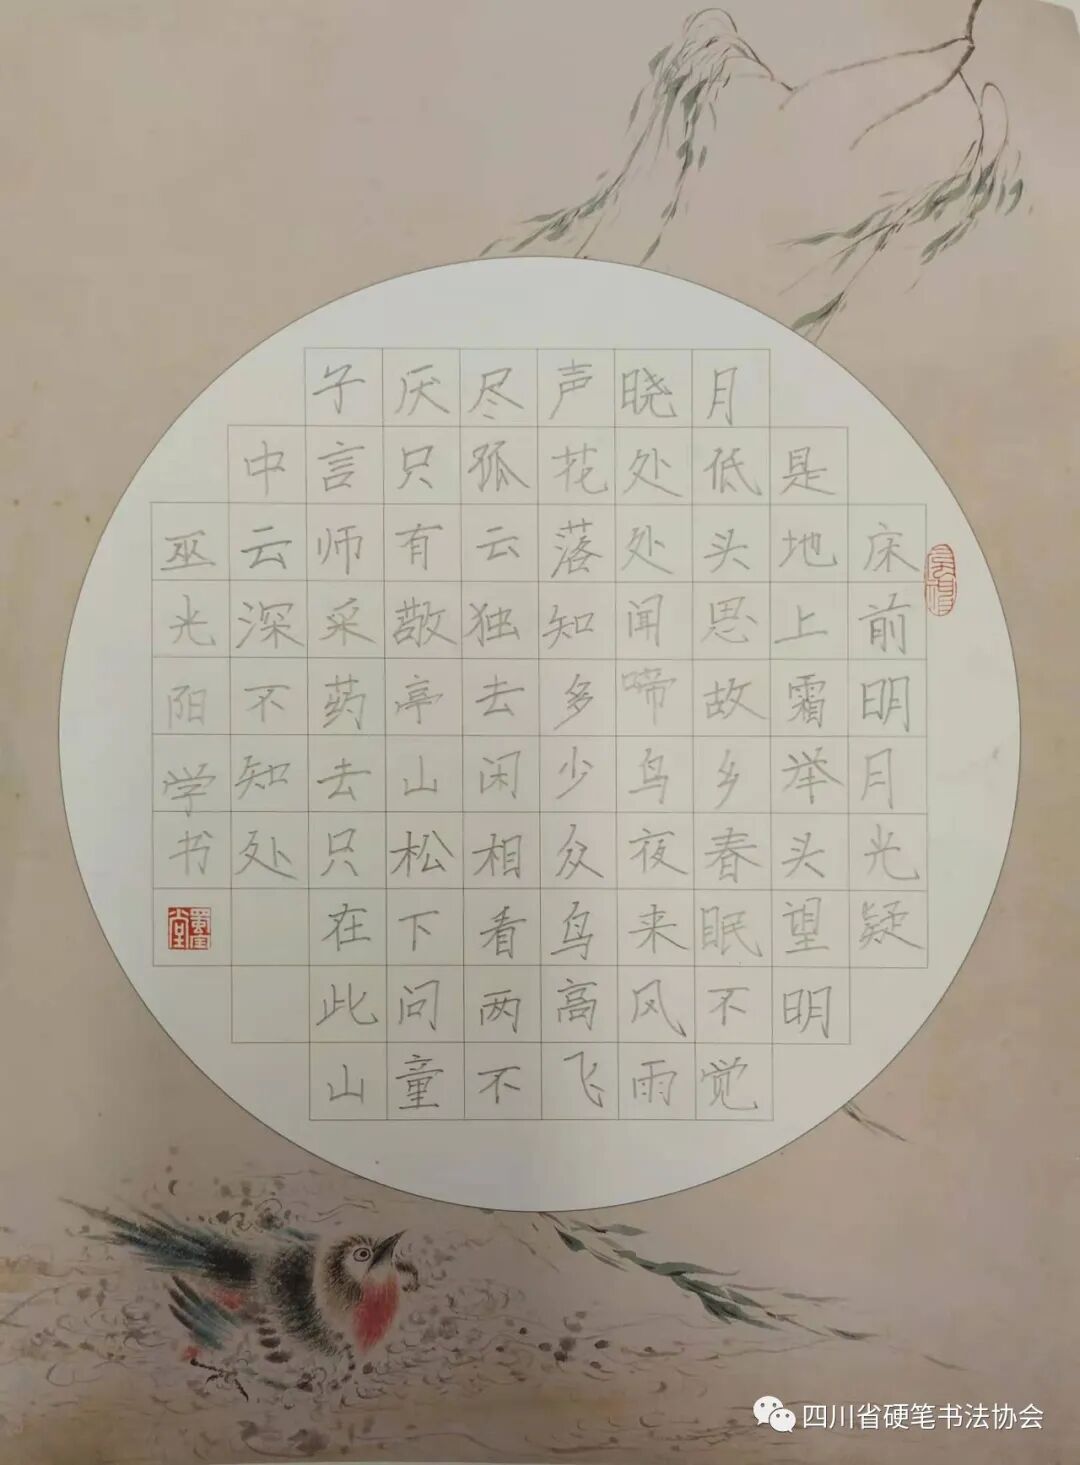 床前明月光疑
是地上霜举头望明
月低头思故乡春眠不觉
晓处处闻啼鸟夜来风雨
声花落知多少众鸟高飞
尽孤云独去闲相看两不
厌只有敬亭山松下问童
子言师采药去只在此山
中云深不知处
巫光阳学书
四川省硬笔书法协会